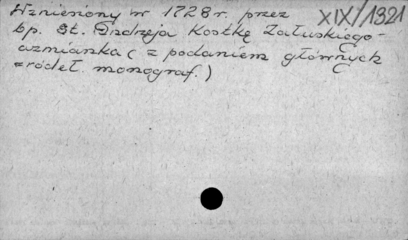 Wzniesiony w 1728 r. przez XIX/1321
bp. St. Andrzeja Kostkę Załuskiego-
azmianka (z podaniem głównych
źródeł. monograf.)